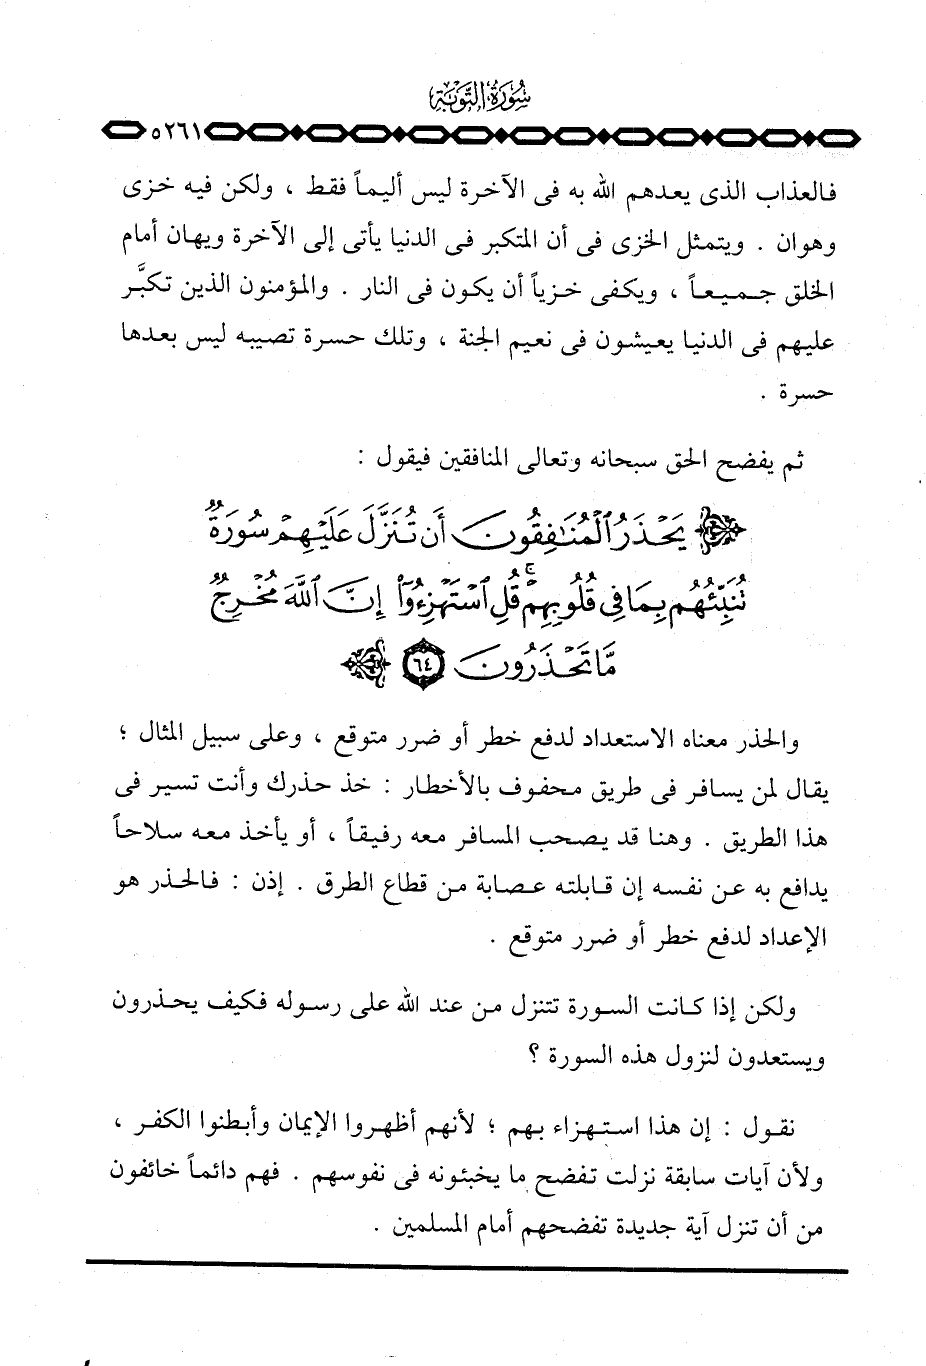 سُورَةُ التَّوْبَة
٥٢٦١
فالعذاب الذى يعدهم الله به فى الآخرة ليس أليماً فقط ، ولكن فيه خزى
وهوان . ويتمثل الخزى فى أن المتكبر فى الدنيا يأتى إلى الآخرة ويهان أمام
الخلق جـميـعـاً ، ويكفى خـزياً أن يكون فى النار . والمؤمنون الذين تكبَّر
عليهم فى الدنيا يعيشون فى نعيم الجنة ، وتلك حسرة تصيبه ليس بعدها
حسرة .
ثم يفضح الحق سبحانه وتعالى المنافقين فيقول :
يَحْذَرُ ٱلْمُنَـٰفِقُونَ أَن تُنَزَّلَ عَلَيْهِمْ سُورَةٌ
تُنَبِّئُهُم بِمَا فِى قُلُوبِهِمْ ۚ قُلِ ٱسْتَهْزِءُوٓا۟ إِنَّ ٱللَّهَ مُخْرِجٌ
مَّا تَحْذَرُونَ ٦٤
والحذر معناه الاستعداد لدفع خطر أو ضرر متوقع ، وعلى سبيل المثال ؛
يقال لمن يسافر فى طريق محفوف بالأخطار : خذ حذرك وأنت تسير فى
هذا الطريق . وهنا قد يصحب المسافر معه رفيقاً ، أو يأخذ معه سلاحاً
يدافع به عن نفسه إن قابلته عصابة من قطاع الطرق . إذن : فالحذر هو
الإعداد لدفع خطر أو ضرر متوقع .
ولكن إذا كانت السورة تتنزل من عند الله على رسوله فكيف يحذرون
ويستعدون لنزول هذه السورة ؟
نقول : إن هذا استهزاء بهم ؛ لأنهم أظهروا الإيمان وأبطنوا الكفر ،
ولأن آيات سابقة نزلت تفضح ما يخبئونه فى نفوسهم . فهم دائماً خائفون
من أن تنزل آية جديدة تفضحهم أمام المسلمين .